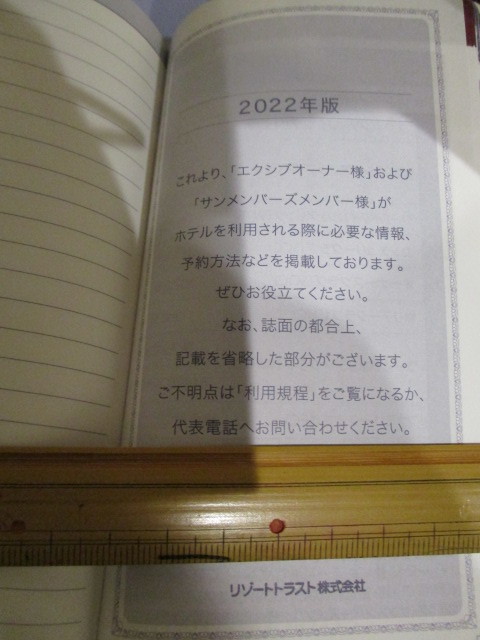 2022年版
これより、「エクシブオーナー様」および
「サンメンバーズメンバー様」が
ホテルを利用される際に必要な情報、
予約方法などを掲載しております。
ぜひお役立てください。
なお、誌面の都合上、
記載を省略した部分がございます。
ご不明点は「利用規程」をご覧になるか、
代表電話へお問い合わせください。
リゾートトラスト株式会社